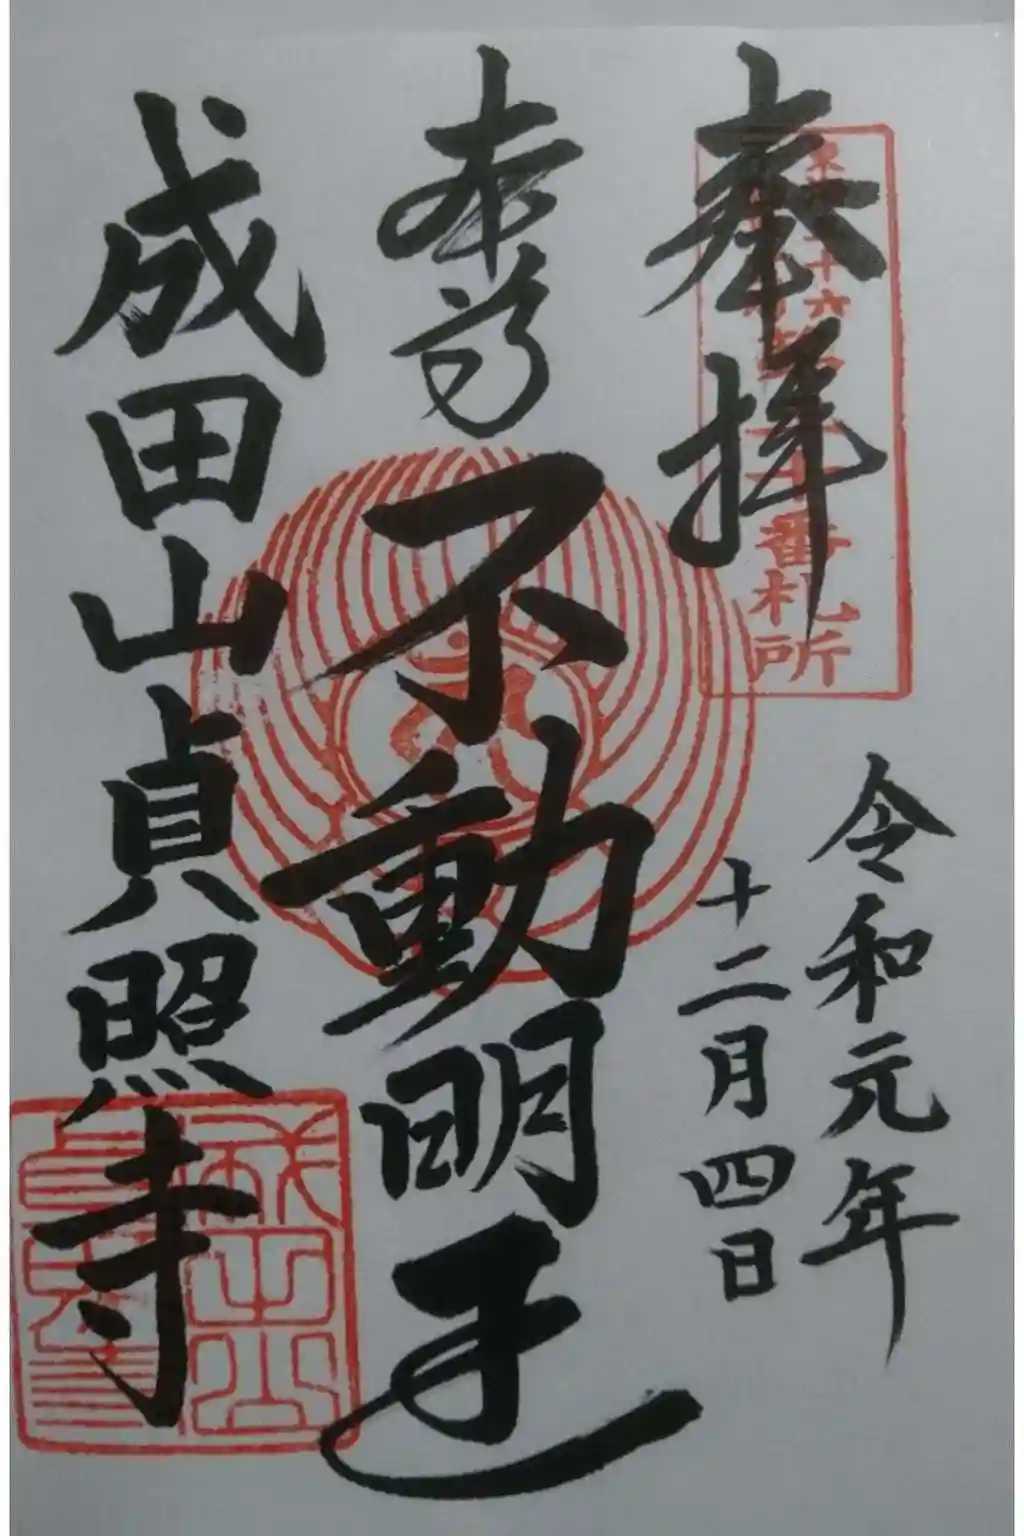 奉拝
十六
二十番札所
令和元年
十二月四日
本尊
不動明王
成田山貞照寺